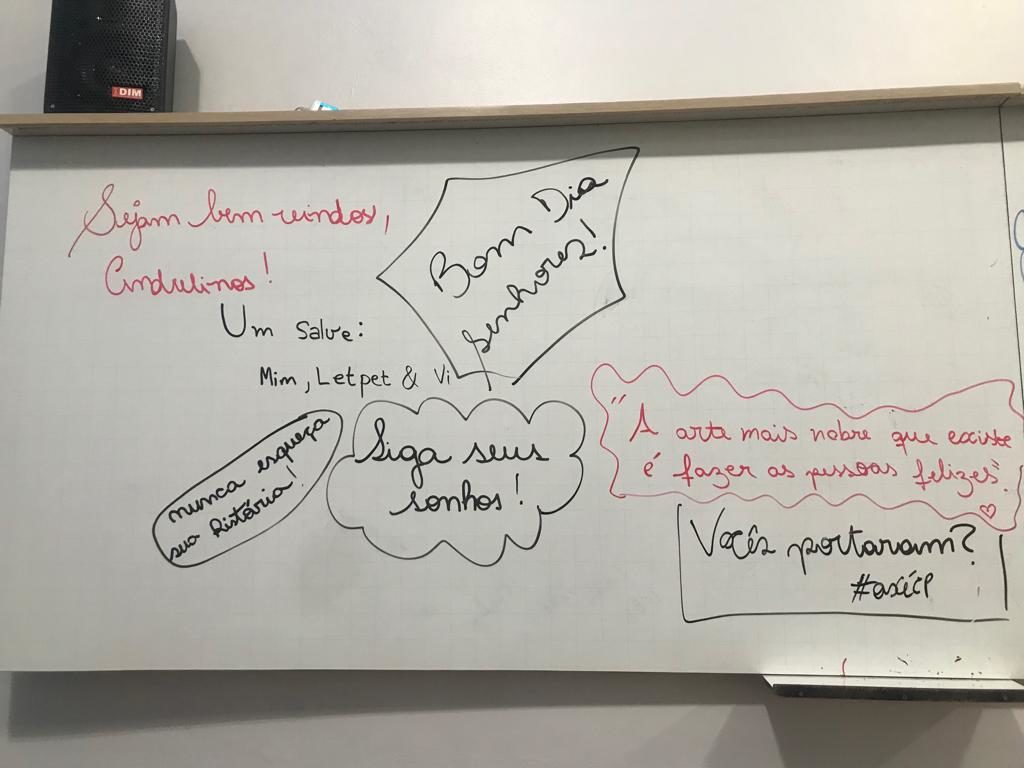 DIM
Sejam bem vindos,
Andulinos!
Um Salve:
Mim, Letpet & Vi
Bom Dia
senhores!
nunca esqueça
sua história!
Siga seus
sonhos!
"A arte mais nobre que existe
é fazer as pessoas felizes".
Vocês portaram?
#axéCP